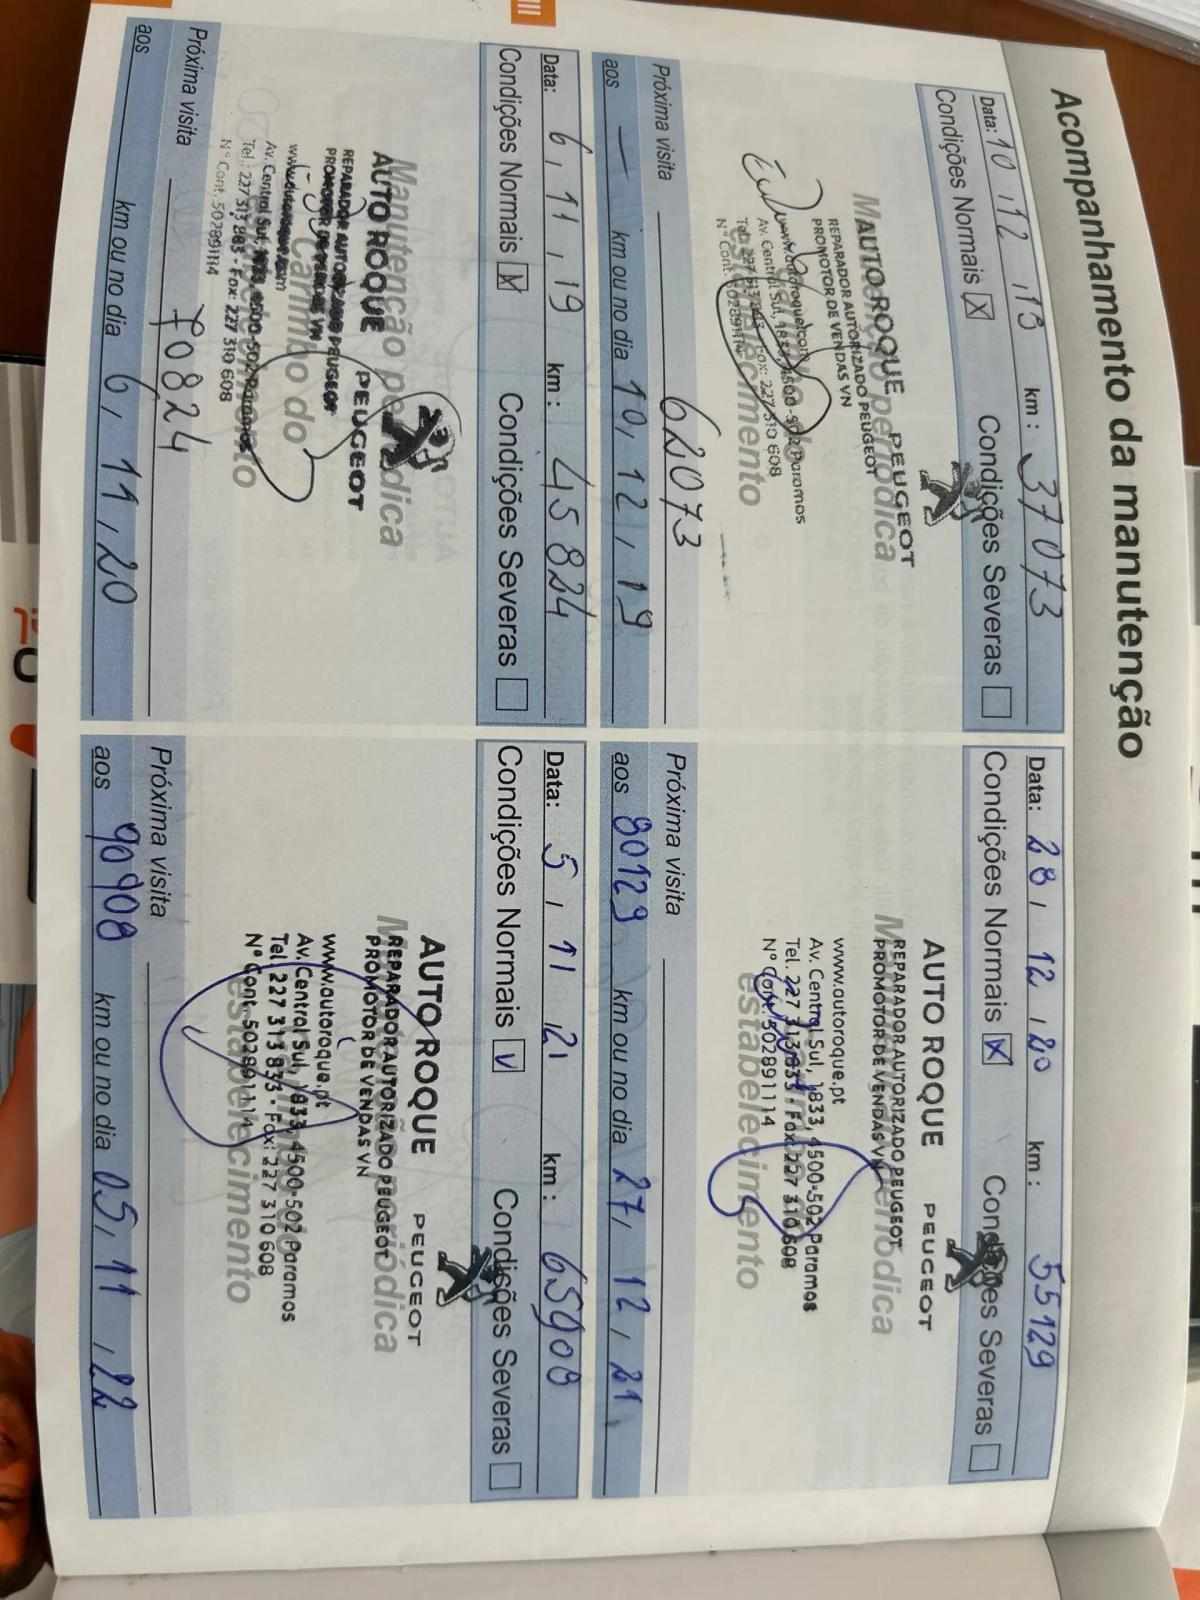 Acompanhamento da manutenção
Data: 10 , 12 , 18 km : 37073
Condições Normais X Condições Severas
Manutenção periódica
AUTO ROQUE PEUGEOT
REPARADOR AUTORIZADO PEUGEOT
PROMOTOR DE VENDAS VN
www.autoroque.com
Av. Central Sul, 1833, 4500-502 Paramos
Tel.: 227 313 833 · Fax: 227 310 608
Nº Cont. 502891114
estabelecimento
Próxima visita 62073
aos — km ou no dia 10 , 12 , 19
Data: 6 , 11 , 19 km : 45824
Condições Normais X Condições Severas
Manutenção periódica
AUTO ROQUE PEUGEOT
REPARADOR AUTORIZADO PEUGEOT
PROMOTOR DE VENDAS VN
Carimbo do
www.autoroque.com
Av. Central Sul, 1833, 4500-502 Paramos
Tel.: 227 313 833 · Fax: 227 310 608
Nº Cont. 502891114
estabelecimento
Próxima visita 70824
aos km ou no dia 6 , 11 , 20
Data: 28 , 12 , 20 km : 55129
Condições Normais X Condições Severas
AUTO ROQUE PEUGEOT
Manutenção periódica
REPARADOR AUTORIZADO PEUGEOT
PROMOTOR DE VENDAS VN
www.autoroque.pt
Av. Central Sul, 1833, 4500-502 Paramos
Tel. 227 313 833 · Fax: 227 310 608
Nº Cont. 502891114
estabelecimento
Próxima visita
aos 80129 km ou no dia 27 , 12 , 21
Data: 5 , 11 , 21 km : 65908
Condições Normais V Condições Severas
AUTO ROQUE PEUGEOT
Manutenção periódica
REPARADOR AUTORIZADO PEUGEOT
PROMOTOR DE VENDAS VN
www.autoroque.pt
Av. Central Sul, 1833, 4500-502 Paramos
Tel. 227 313 833 · Fax: 227 310 608
Nº Cont. 502891114
estabelecimento
Próxima visita
aos 90908 km ou no dia 05 , 11 , 22